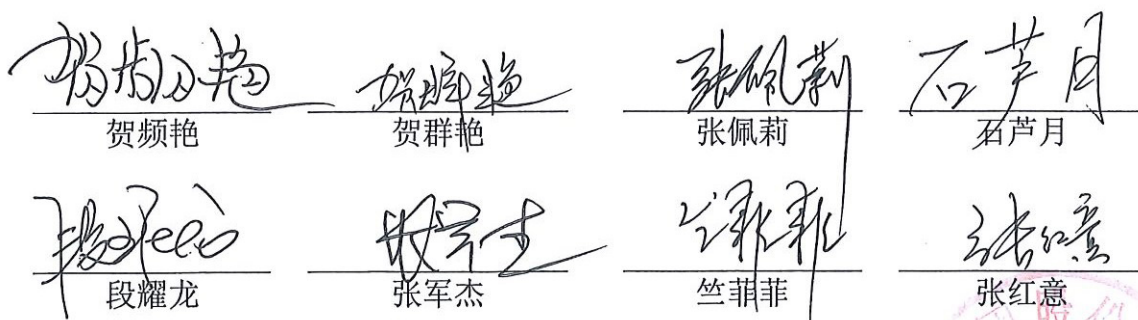 贺频艳 贺群艳 张佩莉 石芦月
贺频艳 贺群艳 张佩莉 石芦月
张军杰 竺菲菲 张红意
段耀龙 张军杰 竺菲菲 张红意